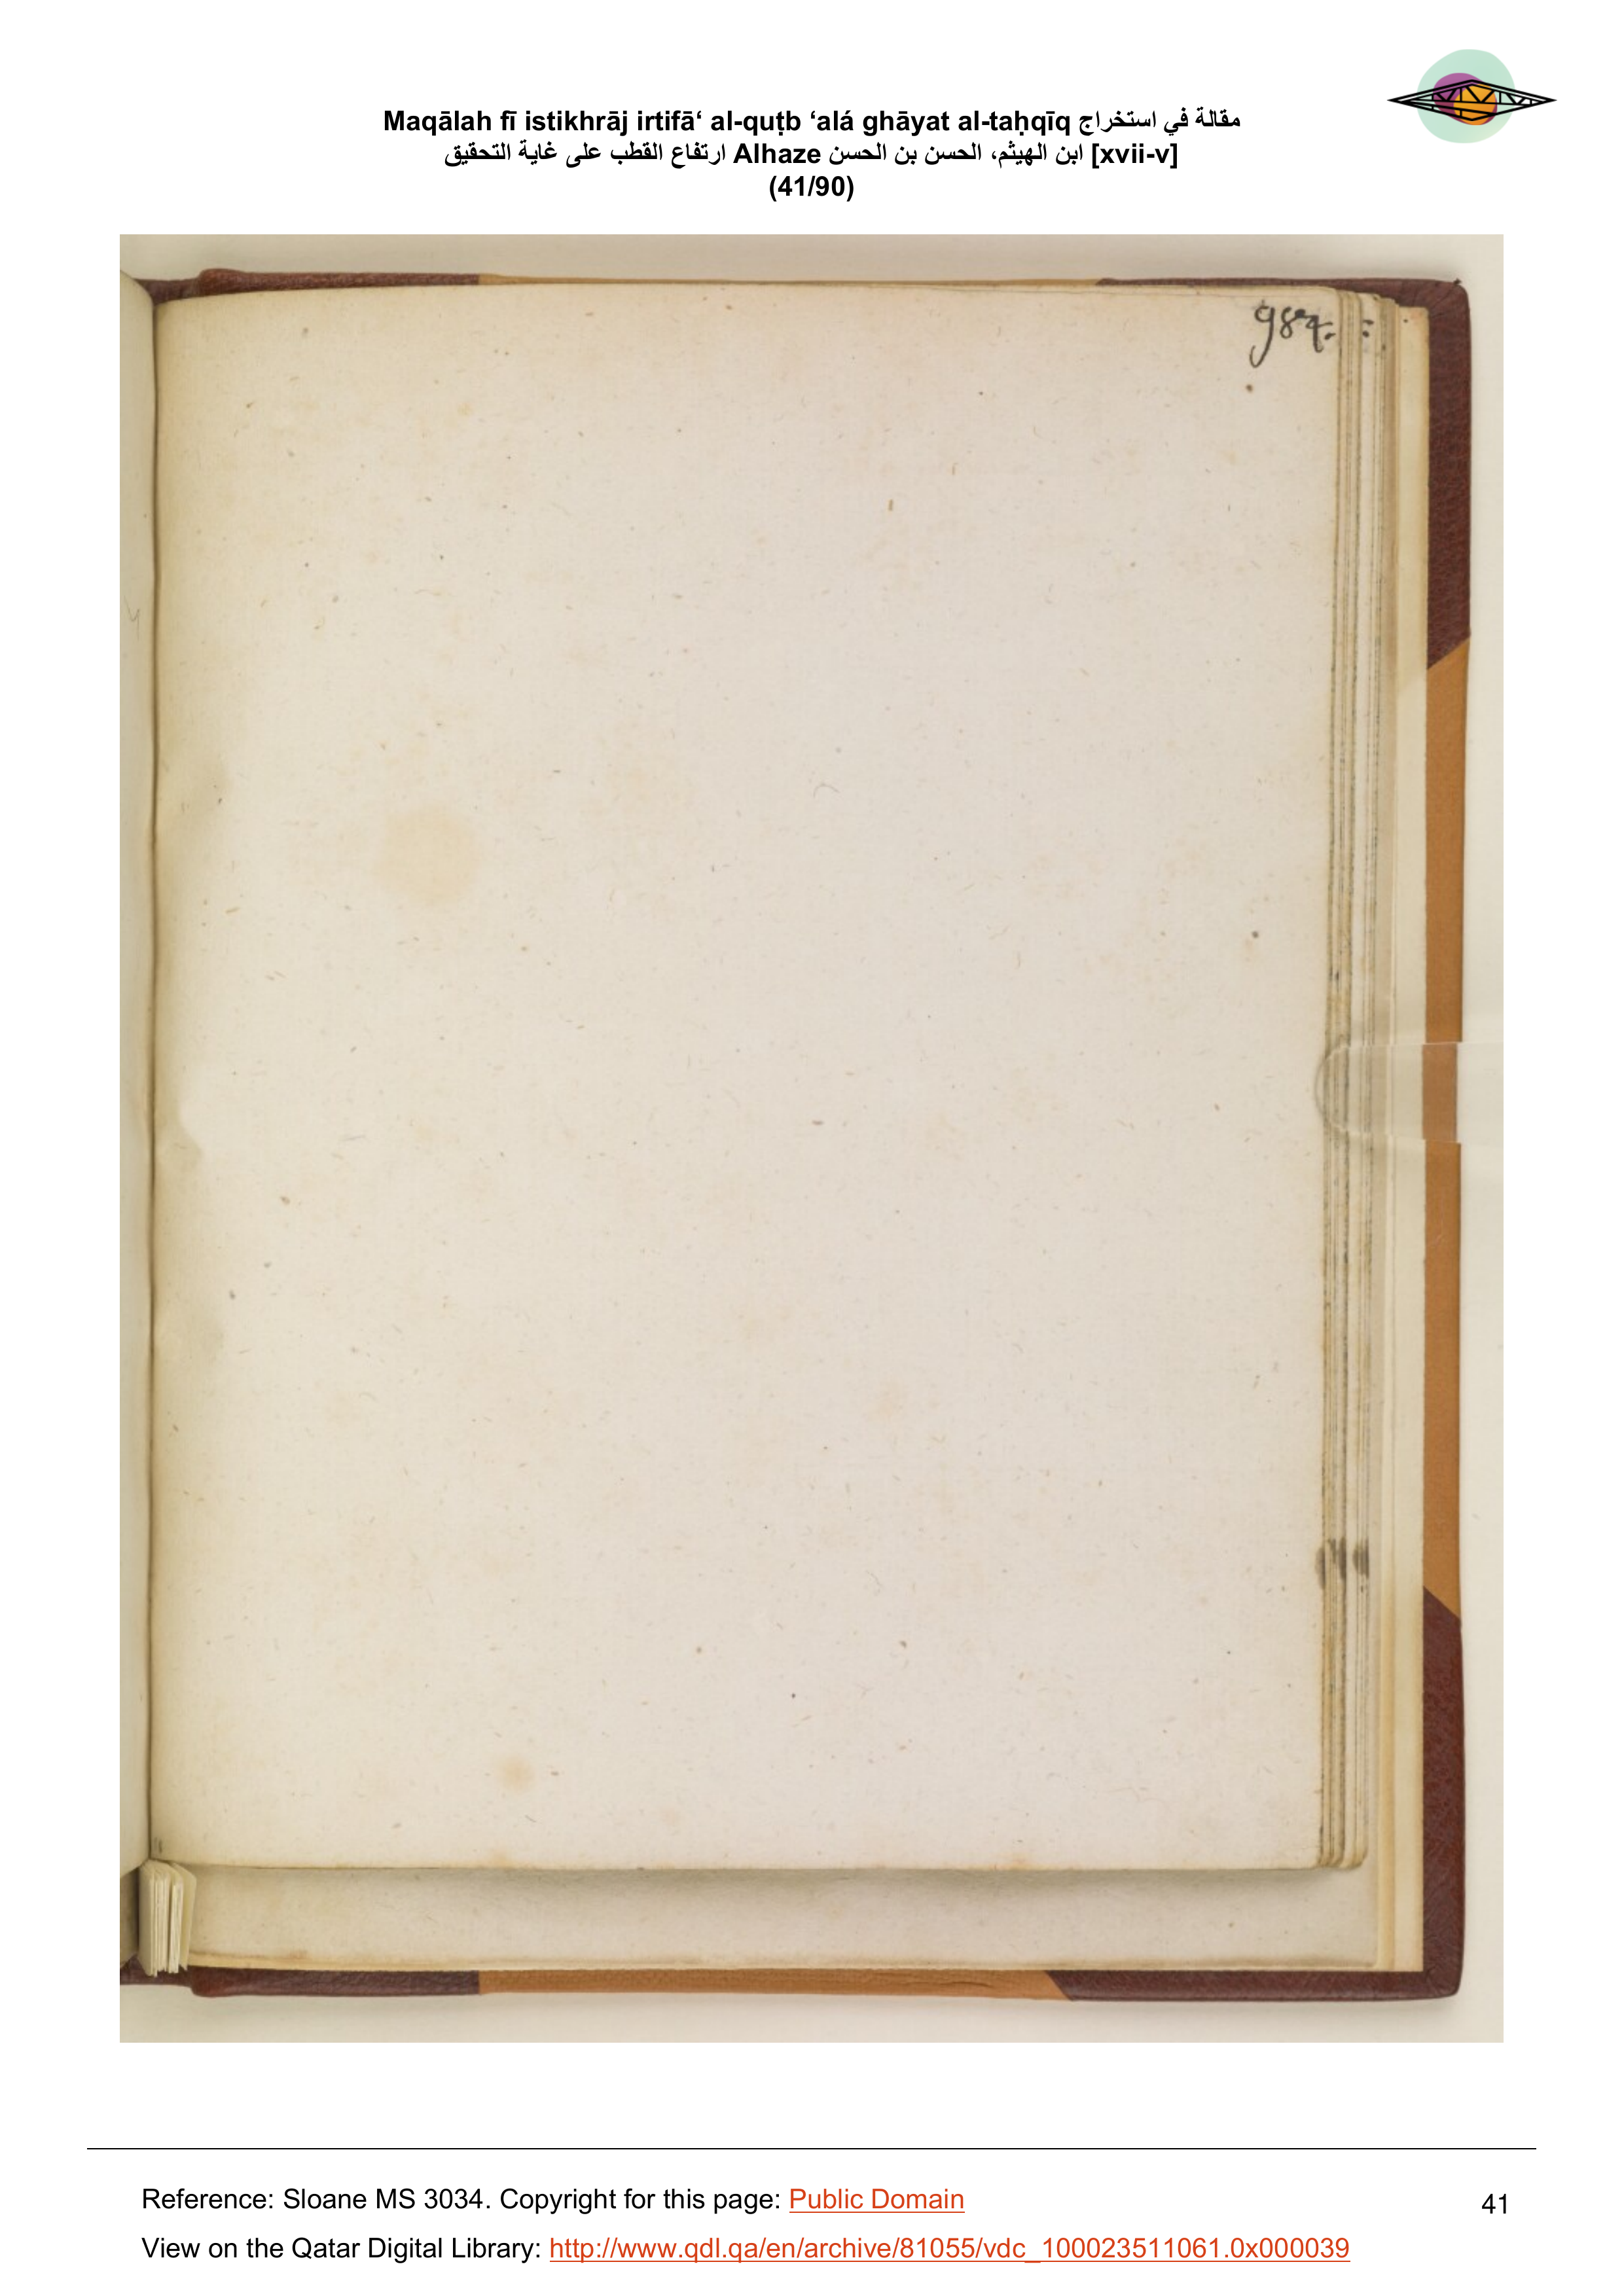 Maqālah fī istikhrāj irtifā‘ al-quṭb ‘alá ghāyat al-taḥqīq مقالة في استخراج
ارتفاع القطب على غاية التحقيق Alhaze ابن الهيثم، الحسن بن الحسن [xvii-v]
(41/90)
Reference: Sloane MS 3034. Copyright for this page: Public Domain
41
View on the Qatar Digital Library: http://www.qdl.qa/en/archive/81055/vdc_100023511061.0x000039